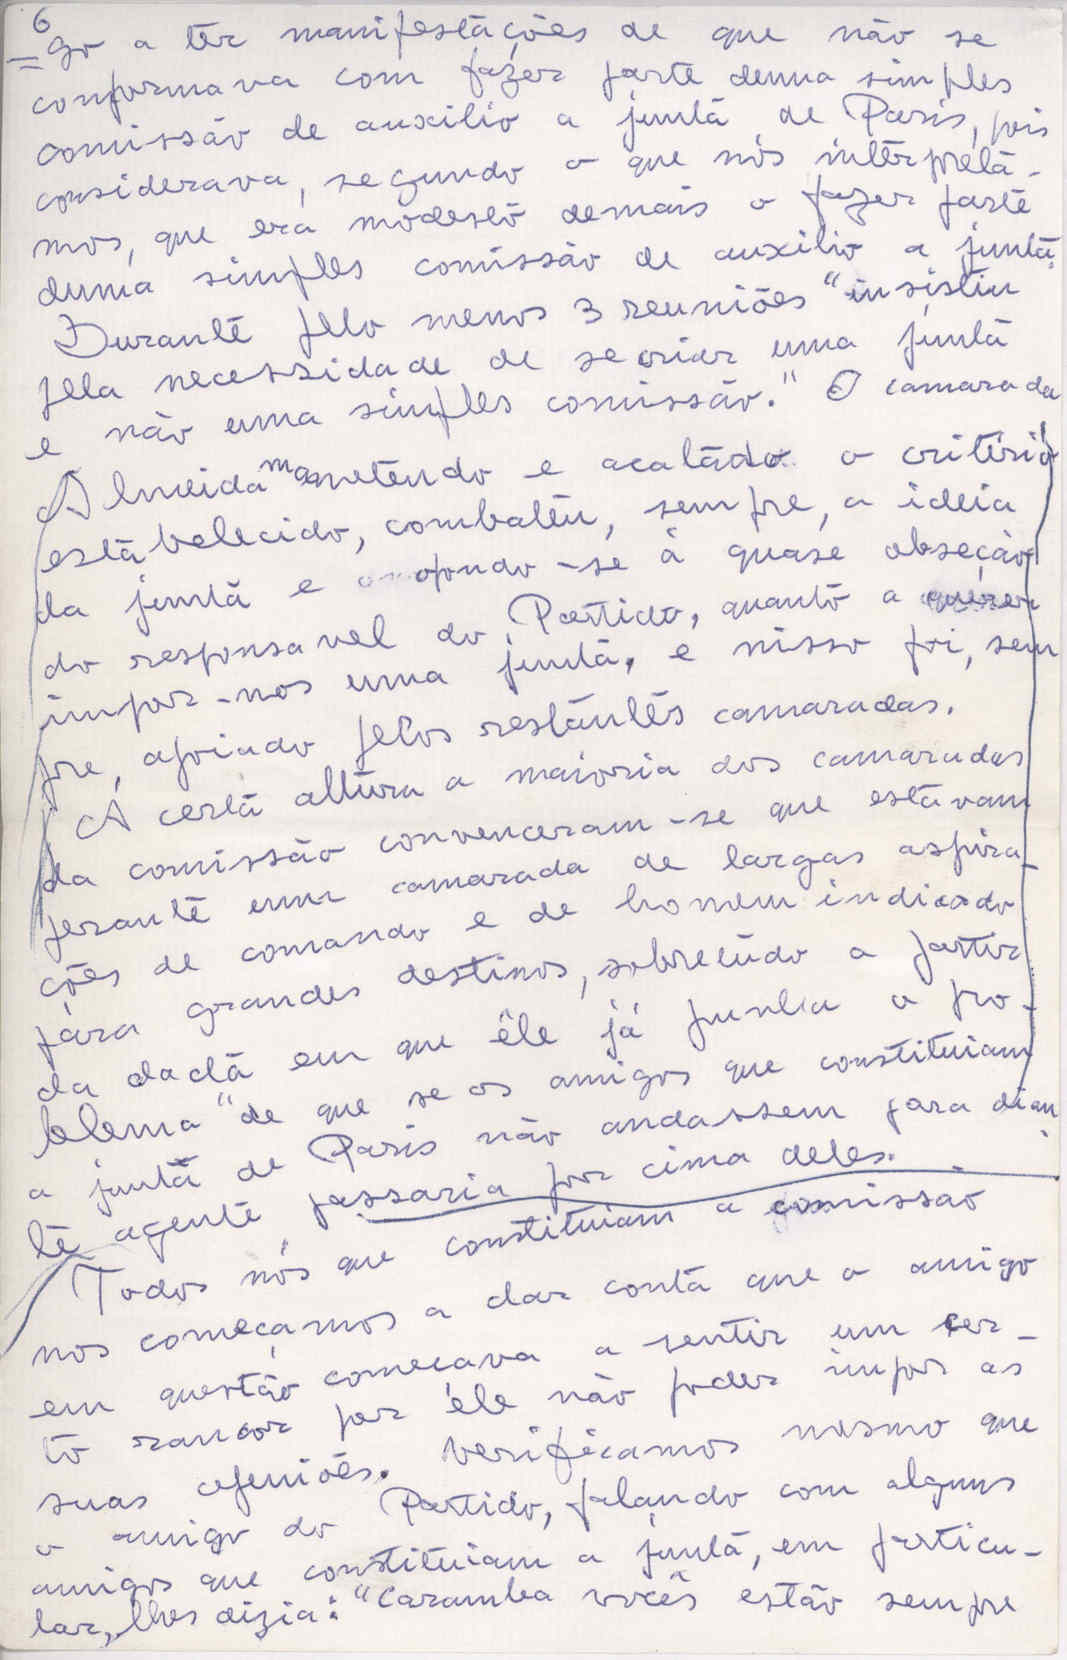 6
go a ter manifestações de que não se
conformava com fazer parte denua simples
comissão de auxilio a junta de Paris, pois
considerava, segundo o que nós interpreta-
mos, que era modesto demais o fazer parte
duma simples comissão de auxilio a junta.
Durante pelo menos 3 reuniões "insistiu
pela necessidade de se criar uma junta
e não uma simples comissão." O camarada
Almeida mantendo e acatado o critério
estabelecido, combateu, sempre, a ideia
da junta e opondo-se à quase obseção
do responsavel do Partido, quanto a querer
impor-nos uma junta, e nisso foi, sem
pre, apoiado pelos restantes camaradas.
A certa altura a maioria dos camaradas
da comissão convenceram-se que estavam
perante um camarada de largas aspira-
ções de comando e de homem indicado
para grandes destinos, sobretudo a partir
da data em que êle já punha o pro-
blema "de que se os amigos que constituiam
a junta de Paris não andassem para dian
te agente passaria por cima deles.
Todos nós que constituiam a comissão
nos começamos a dar conta que o amigo
em questão começava a sentir um cer-
to rancor por êle não poder impor as
suas openiões. Verificamos mesmo que
o amigo do Partido, falando com alguns
amigos que constituiam a junta, em particu-
lar, lhes dizia: "Caramba vocês estão sempre